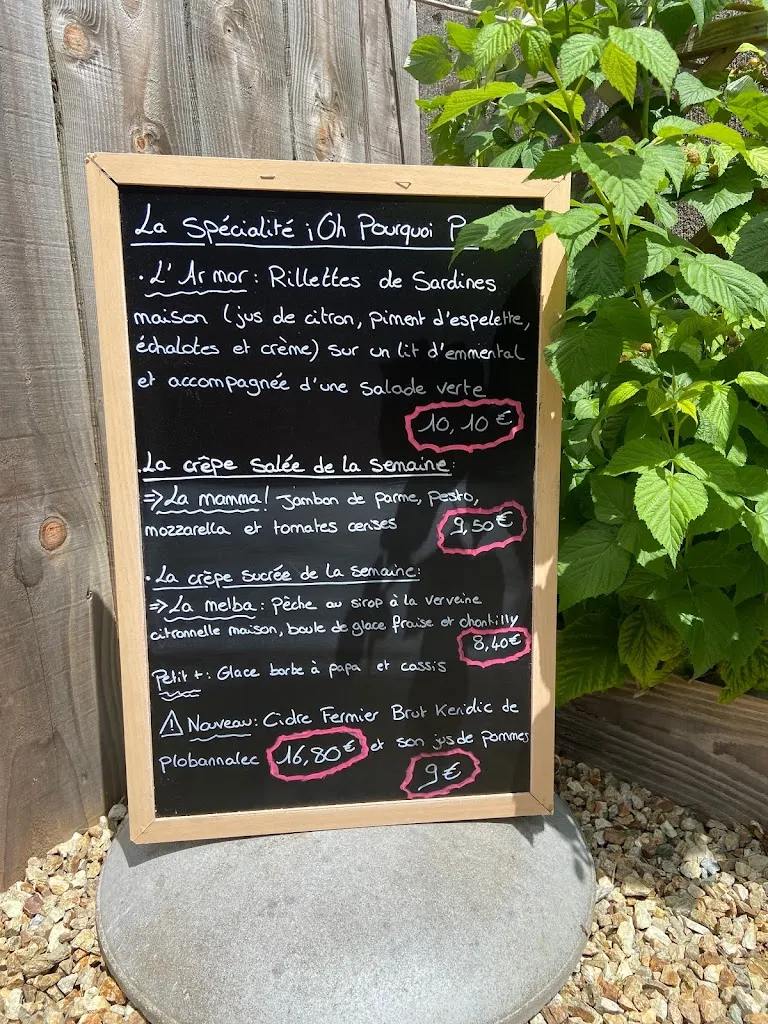 La Spécialité ¡Oh Pourquoi
· L'Armor : Rillettes de Sardines
maison (jus de citron, piment d'espelette,
échalotes et crème) sur un lit d'emmental
et accompagnée d'une salade verte
10,10 €
La crêpe salée de la semaine :
=> La mamma! Jambon de parme, pesto,
mozzarella et tomates cerises 9,50 €
· La crêpe sucrée de la semaine :
=> La melba : Pêche au sirop à la verveine
citronnelle maison, boule de glace fraise et chantilly
8,40 €
Petit + : Glace barbe à papa et cassis
⚠ Nouveau : Cidre Fermier Brut Kenidic de
plobannalec 16,80 € et son jus de pommes
9 €